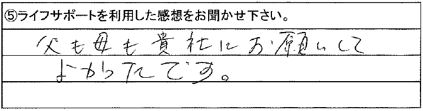 ⑤ライフサポートを利用した感想をお聞かせ下さい。
父も母も貴社にお願いして
よかったです。